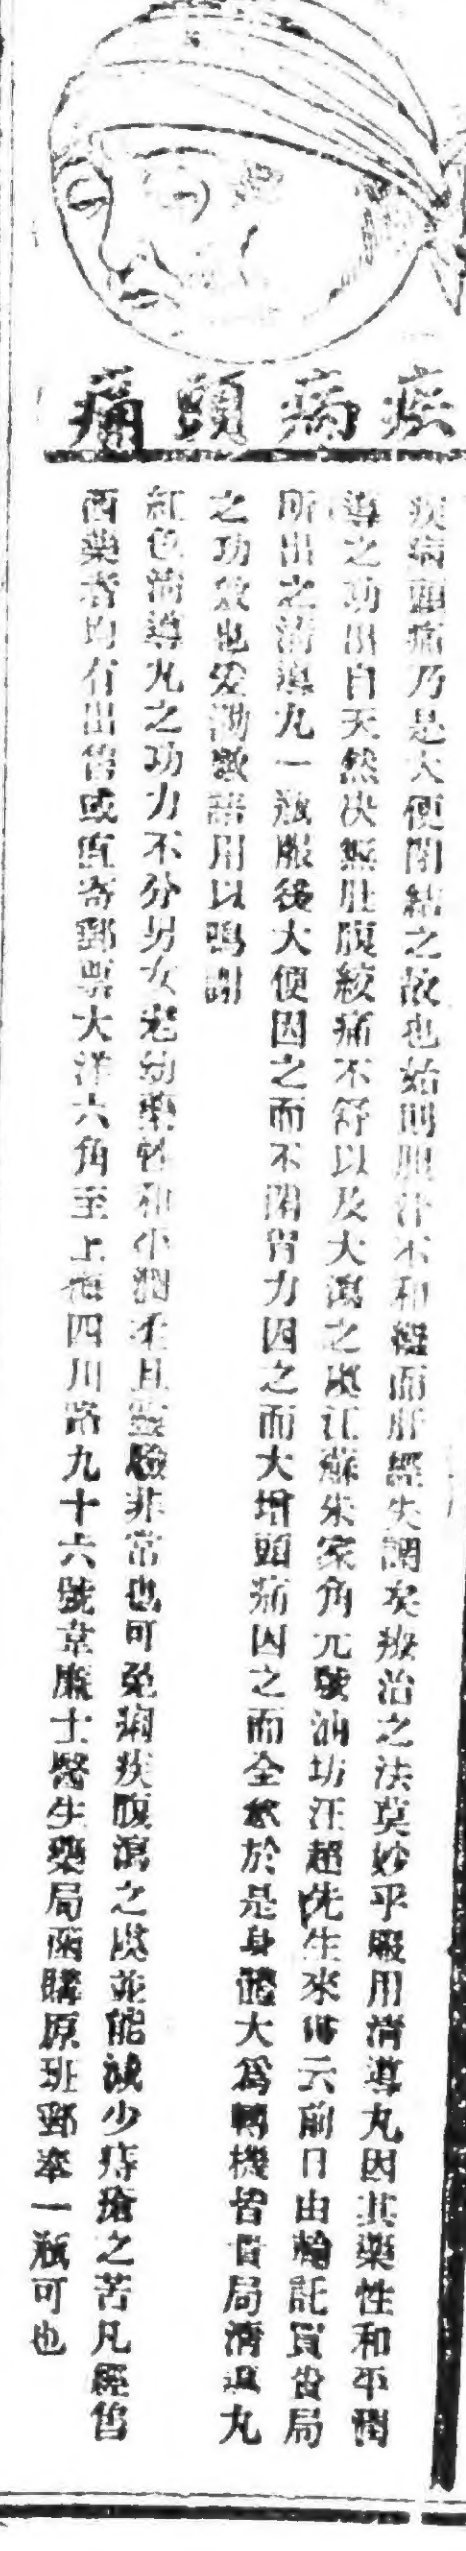 疾病頭痛
疾病頭痛乃是大便閉結之故也始則胆汁不和繼而肝經失調矣療治之法莫妙乎服用清導丸因其藥性和平潤
導之功出自天然决無肚腹絞痛不舒以及大瀉之虞江蘇朱家角元號油坊汪超先生來書云前日由輪託買貴局
所出之清導丸一瓶服後大便因之而不閉胃力因之而大增頭痛因之而全愈於是身體大為轉機皆貴局清導丸
之功效也爰謭數語用以鳴謝
紅色清導丸之功力不分男女老幼藥性和平潤柔且靈驗非常也可免痢疾腹瀉之患並能減少痔瘡之苦凡經售
西藥者均有出售或直寄郵票大洋六角至上海四川路九十六號韋廉士醫生藥局函購原班郵奉一瓶可也